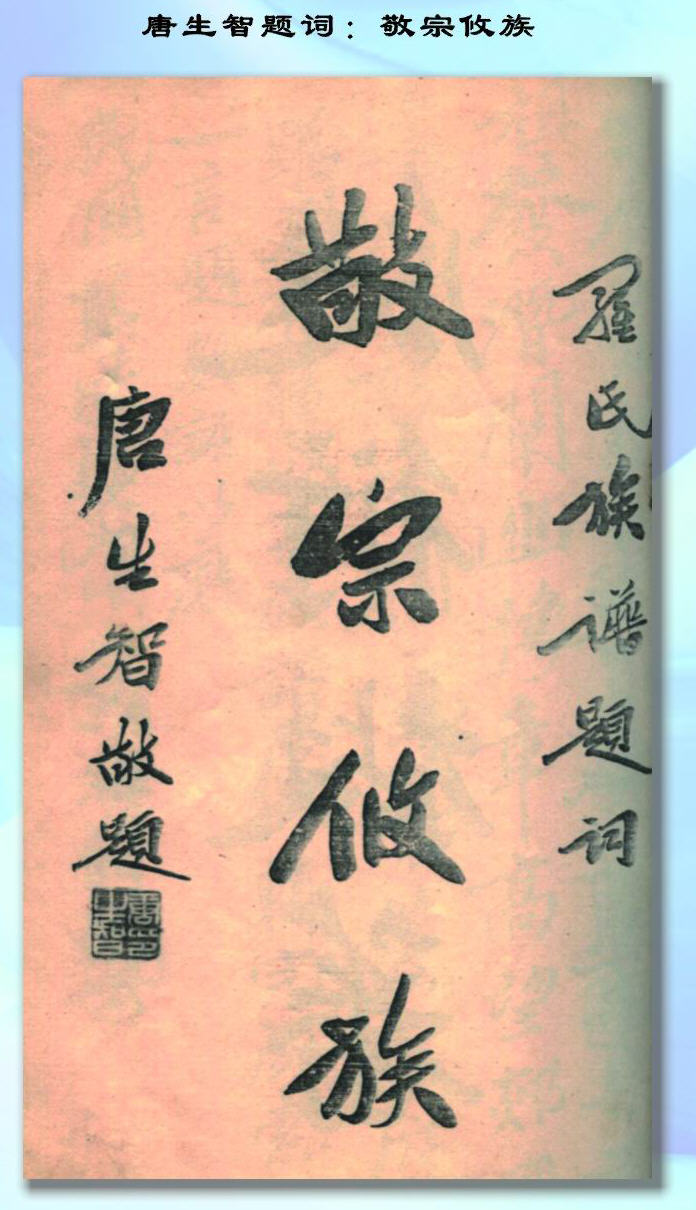 唐生智题词：敬宗攸族
羅氏族譜題词
敬宗攸族
唐生智敬題
唐生智印